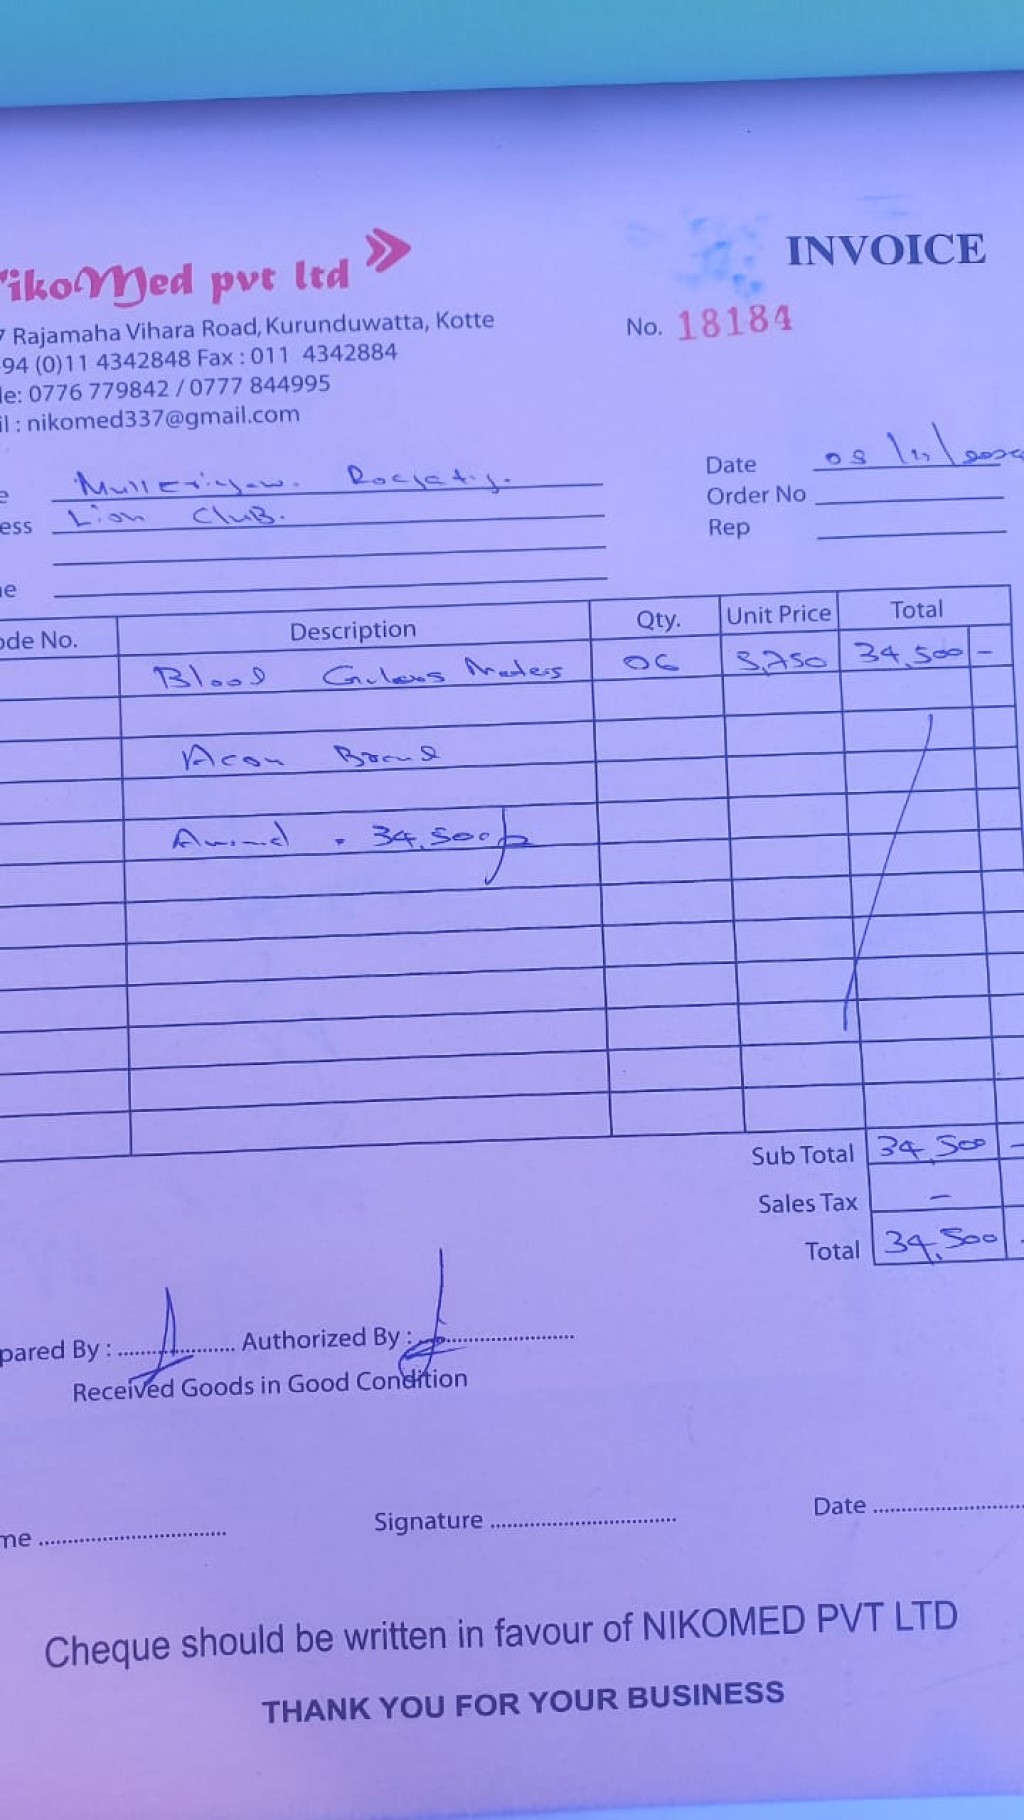 ikoMed pvt ltd
INVOICE
7 Rajamaha Vihara Road, Kurunduwatta, Kotte
No. 18184
94 (0)11 4342848 Fax : 011 4342884
le: 0776 779842 / 0777 844995
il : nikomed337@gmail.com
Date
e
Order No
ess Lion Club.
Rep
ne
ode No. Description Qty. Unit Price Total
Blood 06 5,750 34,500 -
Acon Brand
34,500/=
Sub Total 34,500 -
Sales Tax -
Total 34,500 -
pared By : Authorized By :
Received Goods in Good Condition
me Signature Date
Cheque should be written in favour of NIKOMED PVT LTD
THANK YOU FOR YOUR BUSINESS